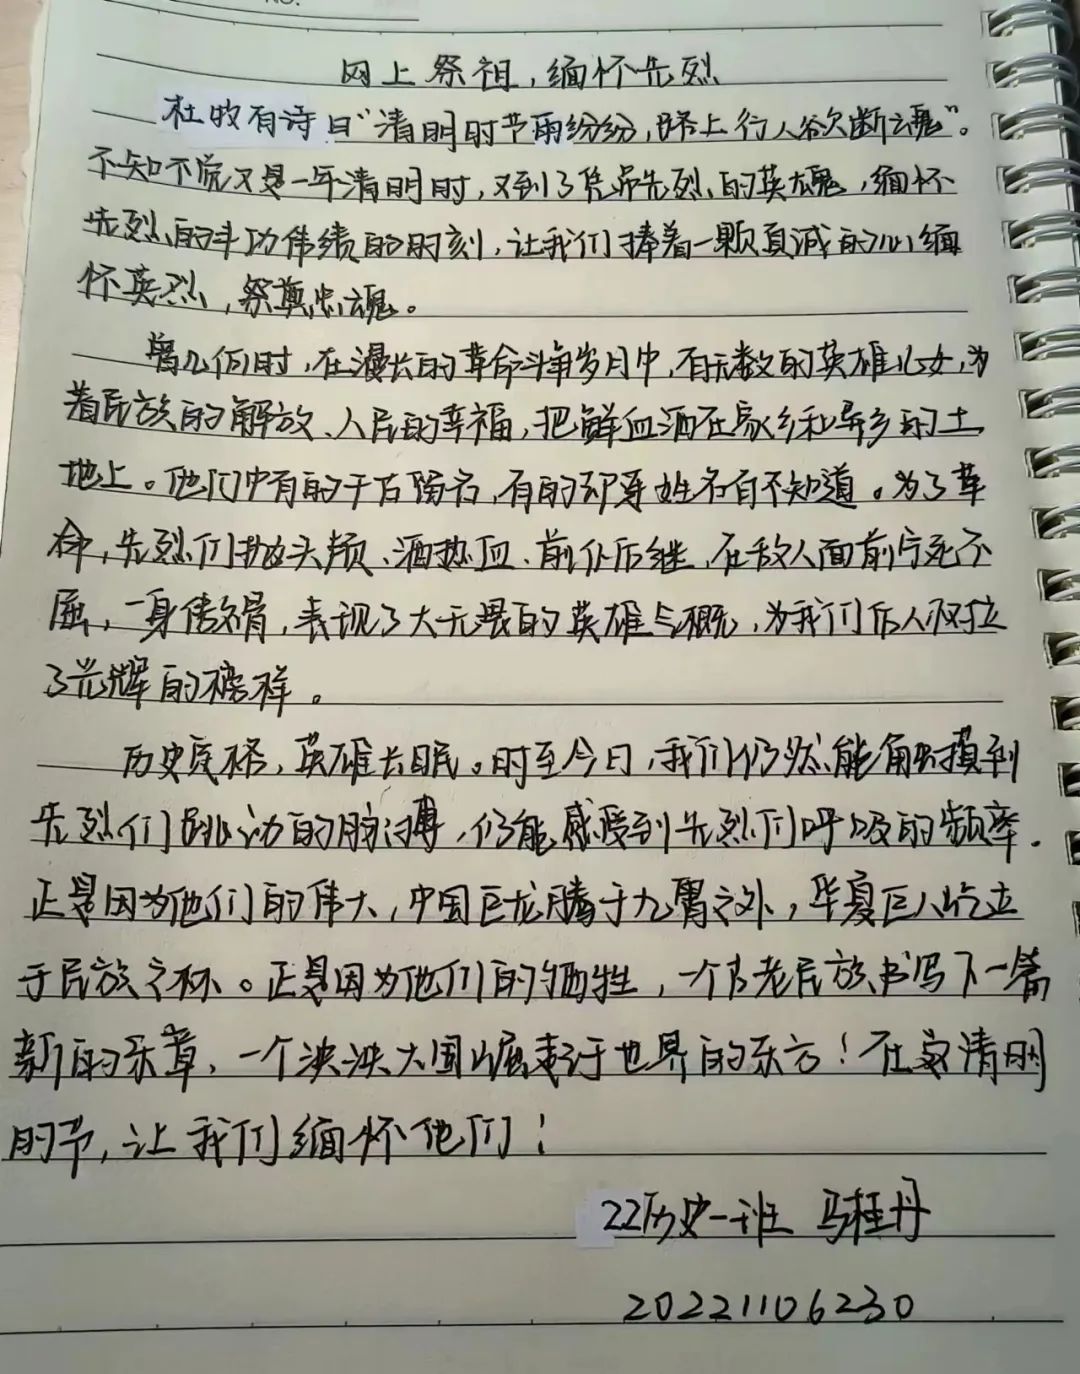 NO.
网上祭祖,缅怀先烈
杜牧有诗曰“清明时节雨纷纷,路上行人欲断魂”。
不知不觉又是一年清明时,又到了凭吊先烈的英魂,缅怀
先烈的丰功伟绩的时刻,让我们捧着一颗真诚的心缅
怀英烈,祭奠忠魂。
曾几何时,在漫长的革命斗争岁月中,有无数的英雄儿女,为
着民族的解放、人民的幸福,把鲜血洒在家乡和异乡的土
地上。他们中有的千古隐名,有的却连姓名自不知道。为了革
命,先烈们抛头颅、洒热血、前仆后继,在敌人面前宁死不
屈,一身傲骨,表现了大无畏的英雄气概,为我们后人树立
了光辉的榜样。
历史定格,英雄长眠。时至今日,我们仍然能触摸到
先烈们跳动的脉搏,仍能感受到先烈们呼吸的频率.
正是因为他们的伟大,中国巨龙腾于九霄之外,华夏巨人屹立
于民族之林。正是因为他们的牺牲,一个古老民族书写下一篇
新的乐章,一个泱泱大国崛起于世界的东方!在这清明
时节,让我们缅怀他们!
22历史一班 马桂丹
20221106230